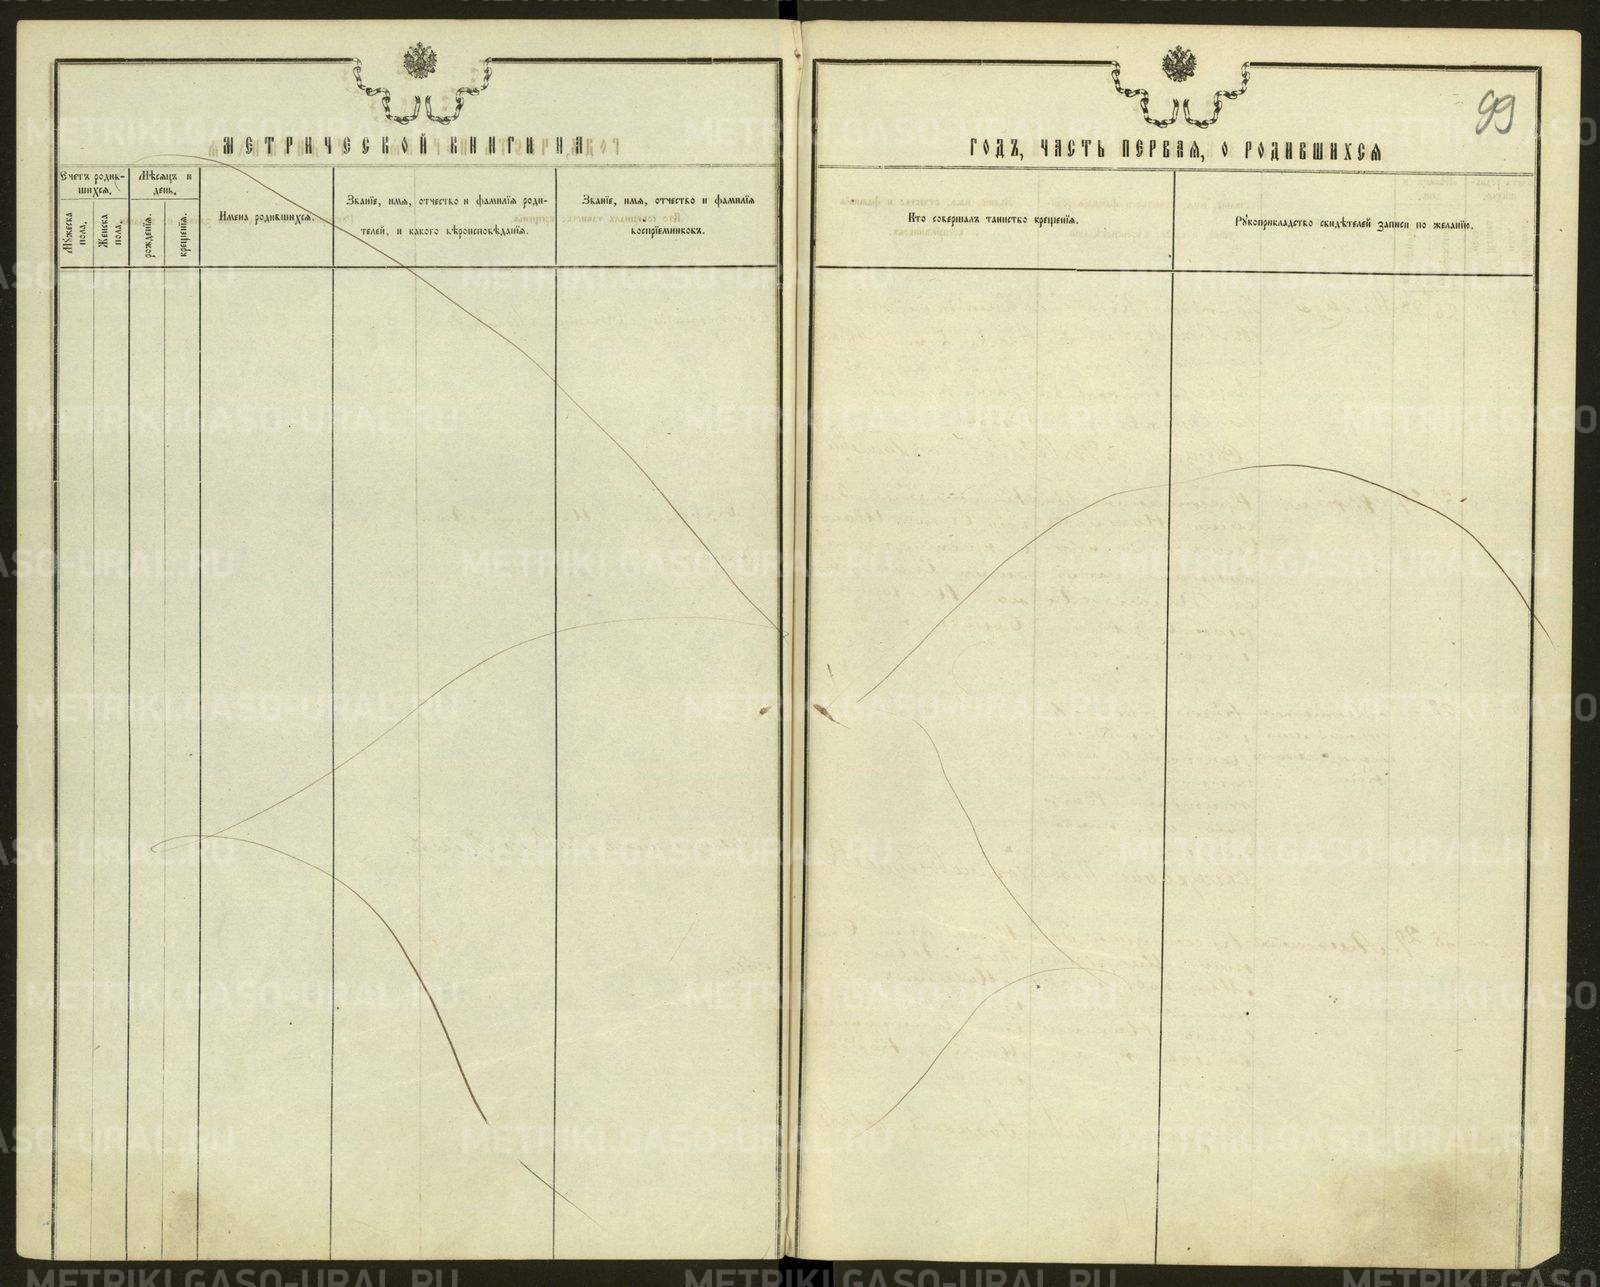 99
МЕТРИЧЕСКОЙ КНИГИ НА
ГОДЪ, ЧАСТЬ ПЕРВАЯ, О РОДИВШИХСЯ
Счетъ родив-
шихся.
Мужеска
пола.
Женска
пола.
Мѣсяцъ и
день.
рожденія.
крещенія.
Имена родившихся.
Званіе, имя, отчество и фамилія роди-
телей, и какого вѣроисповѣданія.
Званіе, имя, отчество и фамилія
воспріемниковъ.
Кто совершалъ таинство крещенія.
Рукоприкладство свидѣтелей записи по желанію.
METRIKI.GASO-URAL.RU